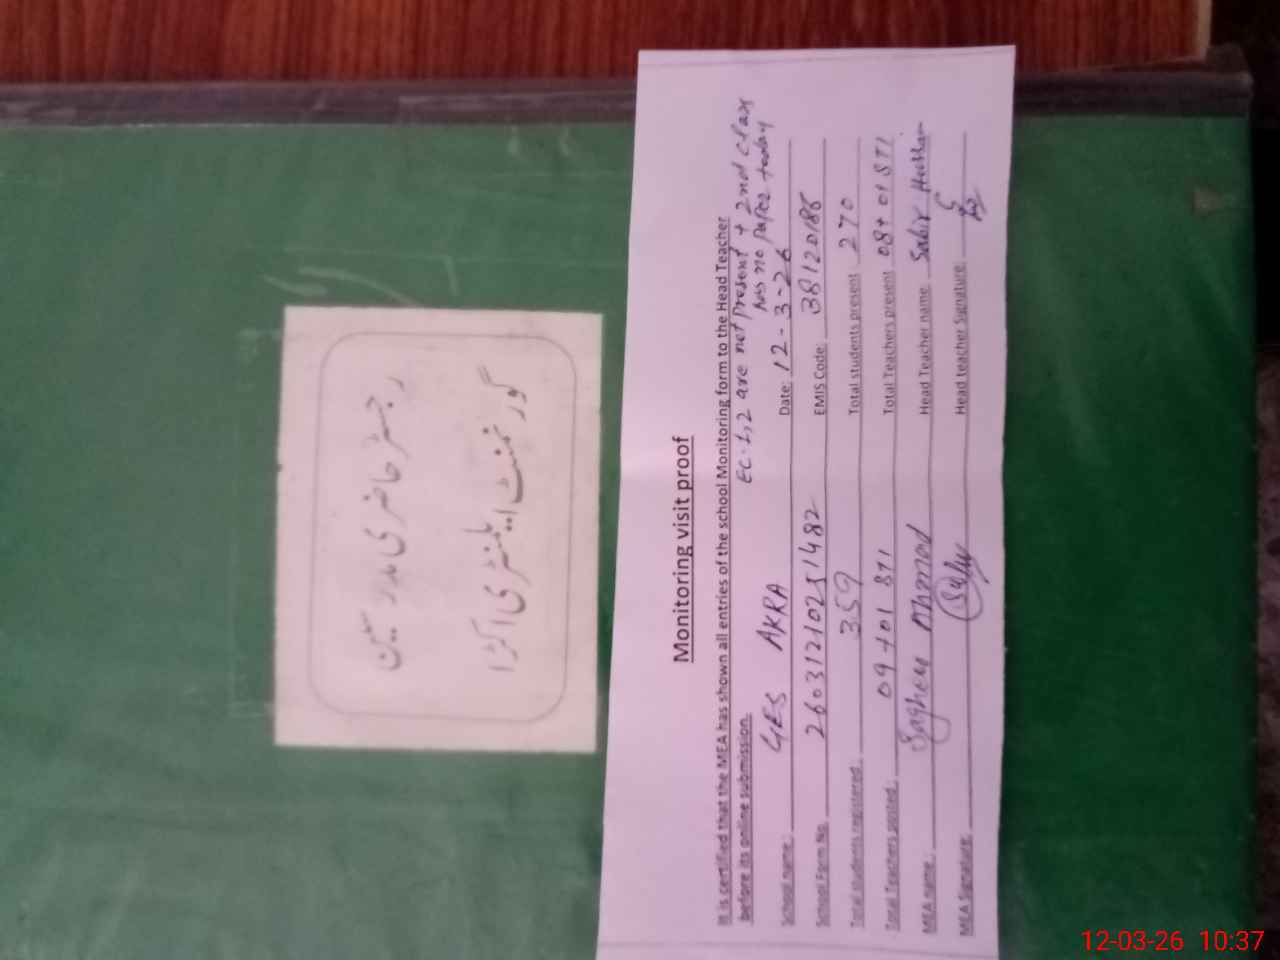 رجسٹر حاضری مدرسین
گورنمنٹ ایلمنٹری اکڑا
Monitoring visit proof
It is certified that the MEA has shown all entries of the school Monitoring form to the Head Teacher
before its online submission.
EC-1,2 are not present + 2nd class
has no paper today
School name: GES AKRA Date: 12-3-26
School Form No. 2603121021482 EMIS Code: 38120186
Total students registered: 359 Total students present 270
Total Teachers posted: 09+01 STI Total Teachers present 08+01 STI
MEA name: Ahmed Head Teacher name Sabir Hussain
MEA Signature: Head teacher Signature:
12-03-26 10:37